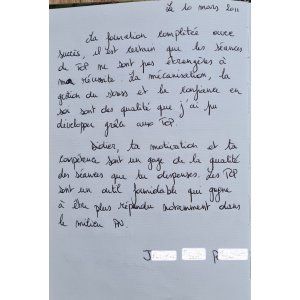 Le 10 mars 2011
La formation complétée avec
succès, il est certain que les séances
de TOP ne sont pas étrangères à
ma réussite. La mécanisation, la
gestion du stress et la confiance en
soi sont des qualité que j'ai pu
développer grâce aux TOP.
Didier, ta motivation et ta
compétence sont un gage de la qualité
des séances que tu dispenses. Les TOP
sont un outil formidable qui gagne
à être plus répandu notamment dans
le milieu PN.
J
R